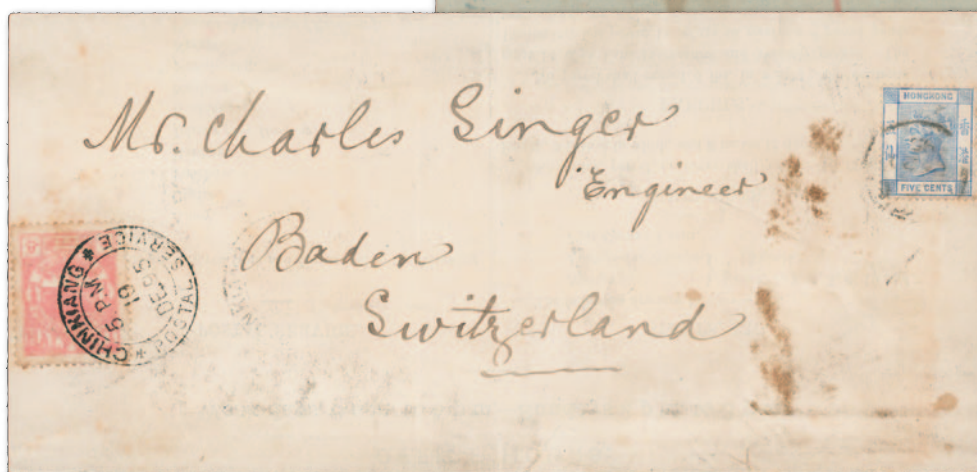 Mr. Charles Singer
Engineer
Baden
Switzerland
HONGKONG
FIVE CENTS
CHINKIANG
POSTAL SERVICE
5 PM
19
DE95